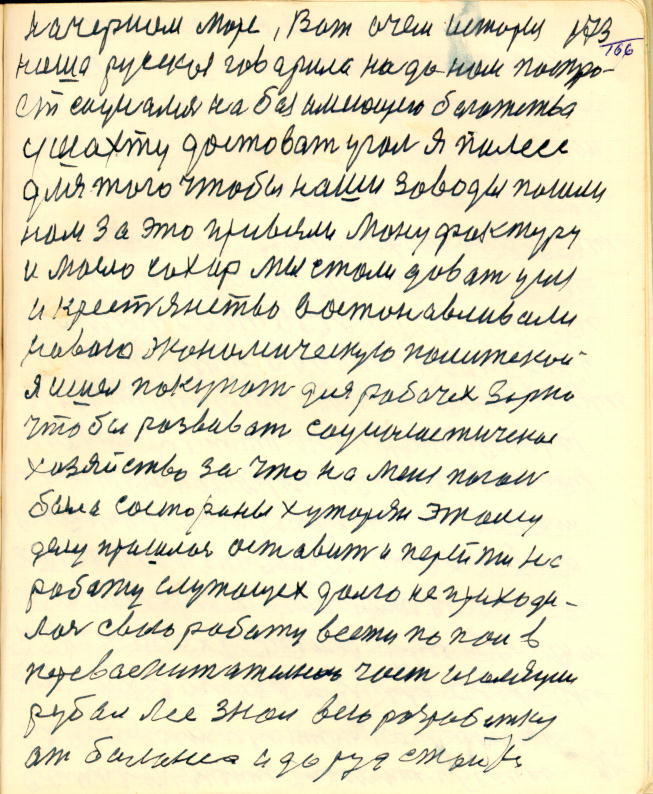 на черном море, Вот очем история 173
166
наша руская гаварила надо нам постро-
ит социализм на без имеющего богатства
ушахту доствоват угол я полесе
для того чтобы наши Заводы пошли
нам За это привезли Мануфактуру
и масло сахар мы стали доват угля
и крестянство востонавливали
новаю экономическую политекой
я шел покупат для рабочех Зерно
чтобы развиват социалистическое
хозяйство За что на меня погон
была состораны хуторян Этому
делу пришлос оставит и перейти на
работу служащех долго не приходи-
лос свою работу вести попол в
перевоспитателною част изоляции
рубал лес Знал всю розработку
от баланса и до рудстойке